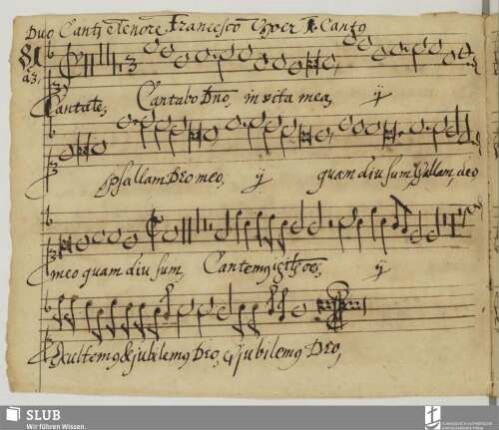 Duo Canti è Tenore Francesco
Canto
Cantate, Cantabo Dno, in vita mea, ij
psallam Deo meo, ij quam diu sum, psallam, deo
meo quam diu sum, Cantem9 ij
Exultem9 & jubilem9 Deo, & jubilem9 Deo,
SLUB
Wir führen Wissen.